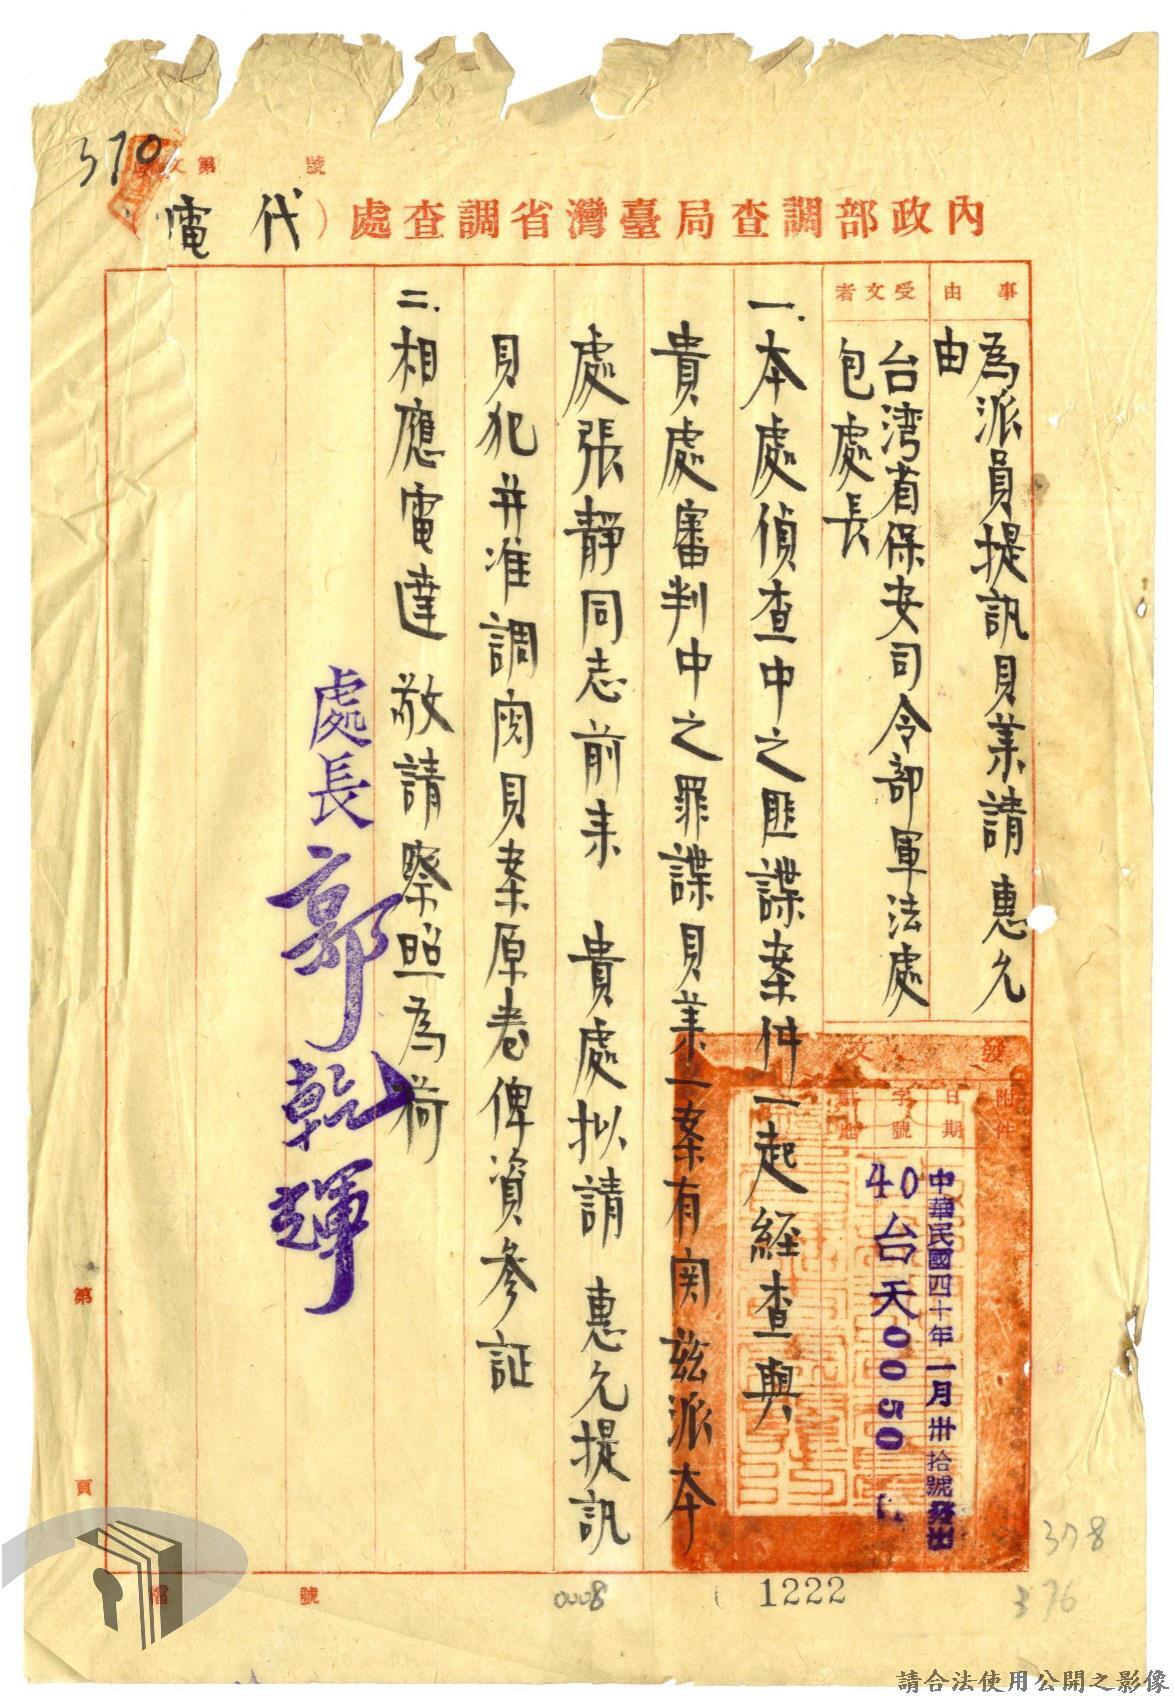 370
第 號
內政部調查局臺灣省調查處（代電
事由
為派員提訊貝業請惠允
由
受文者
台湾省保安司令部軍法處
包處長
發文
附件
日期
字號
中華民國四十年一月卅拾號發出
40台天0050
一.本處偵查中之匪諜案件一起經查與
貴處審判中之罪諜貝業一案有関茲派本
處張靜同志前来 貴處拟請 惠允提訊
貝犯并准調閱貝案原卷俾資參証
二.相應電達 敬請察照為荷
處長郭乾輝
第
頁
檔 號
0008
1222
378
376
請合法使用公開之影像